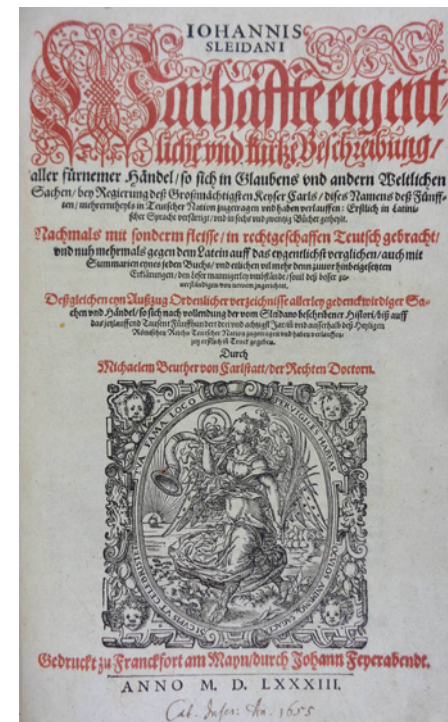 IOHANNIS
SLEIDANI
Warhaffte eigent
liche vnd kurtze Beschreibung /
aller fürnemer Händel / so sich in Glaubens vnd andern Weltlichen
Sachen / bey Regierung deß Großmächtigsten Keyser Carls / dises Namens deß Fünff-
ten / mehrerntheyls in Teutscher Nation zugetragen vnd haben verlauffen : Erstlich in Latini-
scher Sprache verfertigt / vnd in sechs vnd zwentzig Bücher getheylt.
Nachmals mit sonderm fleisse / in rechtgeschaffen Teutsch gebracht /
vnd nuh mehrmals gegen dem Latein auff das eygentlichst verglichen / auch mit
Summarien eynes jeden Buchs / vnd etlichen vil mehr denn zuuor hinbeigesetzten
Erklärungen / den leser mannigerley vmbstände / souil deß besser zu-
uerständigen von newem zugerichtet.
Deßgleichen eyn Außzug Ordenlicher verzeichnisse allerley gedenckwirdiger Sa-
chen vnd Händel / so sich nach vollendung der vom Sleidano beschribener Histori / biß auff
das jetzlauffend Tausent Fünffhundert drei vnd achtzigst Jar / in vnd ausserhalb deß Heyligen
Römischen Reichs Teutscher Nation zugetragen vnd haben verlauffen /
jetz erstlich in Truck gegeben.
Durch
Michaelem Beuther von Carlstatt / der Rechten Doctorn.
PERVIGILES HABEAS OCVLOS ANIMVMQ. SAGACEM
SI CVPIS VT CELEBRI STET TVA FAMA LOCO
Gedruckt zu Franckfort am Mayn / durch Johann Feyerabendt.
ANNO M. D. LXXXIII.
An. 1655